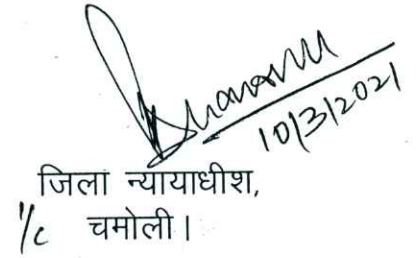 10/3/2021
जिला न्यायाधीश,
1/c चमोली।